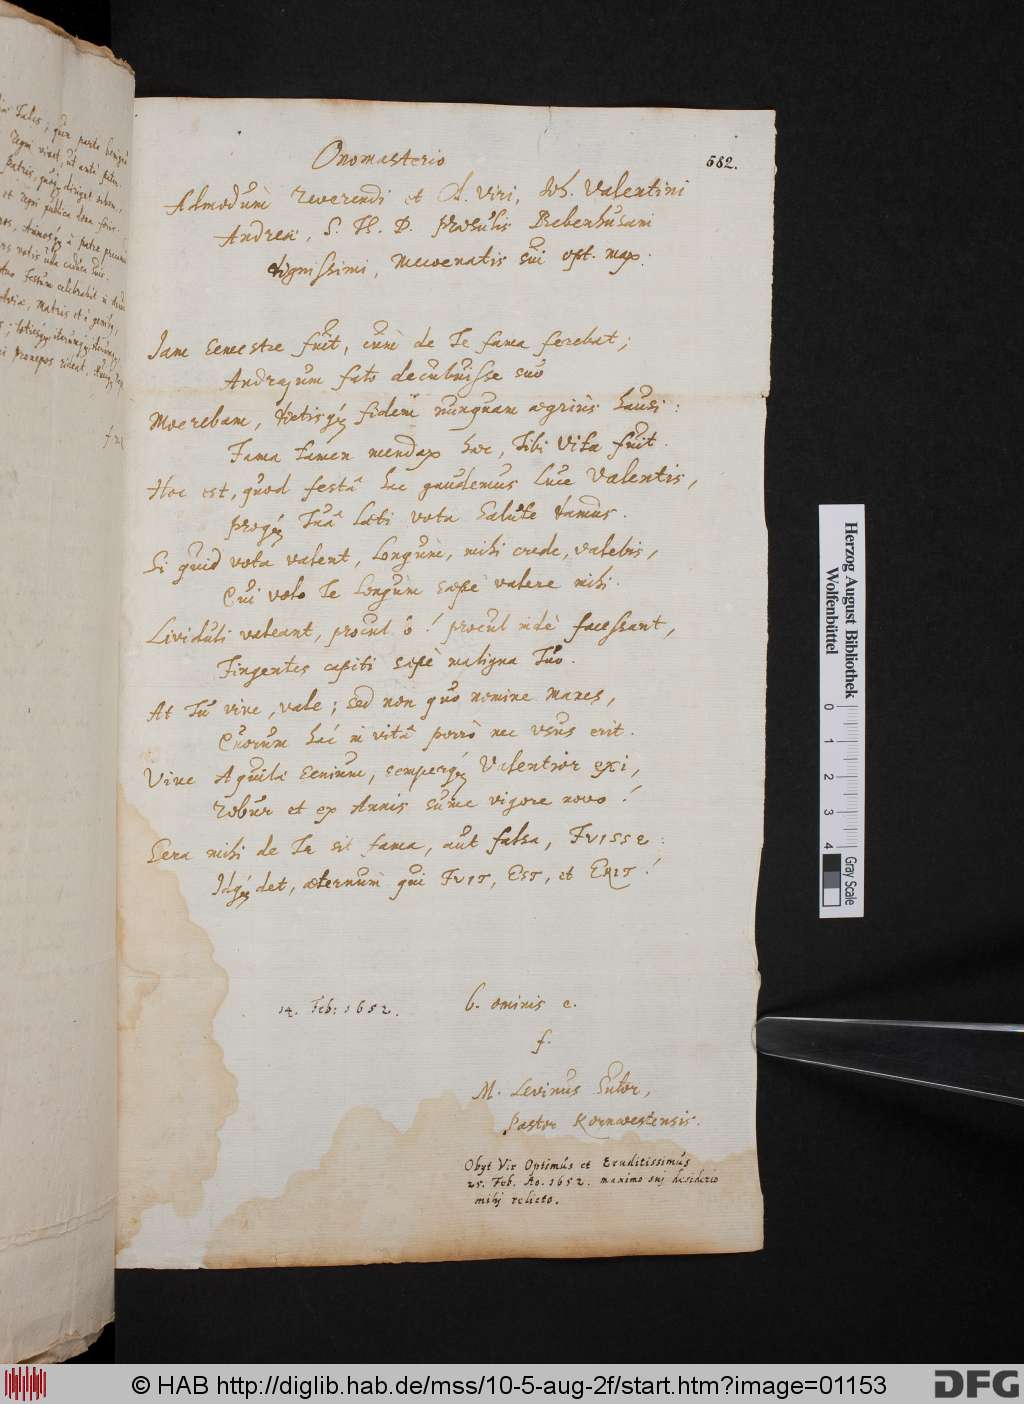 582.
Onomasterio
Admodum reverendi et Cl. Viri, Joh. Valentini
Andreæ, S. Th. D. Præsulis Bebenhusani
dignissimi, Mecoenatis sui opt. max:
Jam semestre fuit, cum de Te fama ferebat;
Andreajum fato decubuisse suo
Moerebam, tristisq; fidem nunquam ægrius hausi:
Fama tamen mendax hæc, Tibi Vita fuit.
Hoc est, quod festâ hac gaudemus luce Valentis,
proq; Tuâ læti vota Salute damus.
Si quid vota valent, longum, mihi crede, valebis,
Cui volo Te longùm sæpè valere mihi.
Lividuli valeant, procul ô! procul indè facessant,
Fingentes capiti sæpè maligna Tuo.
At Tu vive, vale; sed non quo nomine Manes,
Quorum hâc in vitâ porrò nec usus erit.
Vive Aquilæ senium, semperq; Valentior exi,
robur et ex Annis sume vigore novo!
Sera mihi de Te sit fama, aut falsa, FVISSE:
Idq; det, æternùm qui FVIT, EST, et ERIT!
14. Feb: 1652.
b. ominis e.
f.
M. Levinus Sutor,
Pastor Kornwestensis.
Obyt Vir Optimus et Eruditissimus
25. Feb. Ao. 1652. maximo suj desiderio
mihj relicto.
Herzog August Bibliothek
Wolfenbüttel
0 1 2 3 4
Gray Scale
© HAB http://diglib.hab.de/mss/10-5-aug-2f/start.htm?image=01153
DFG